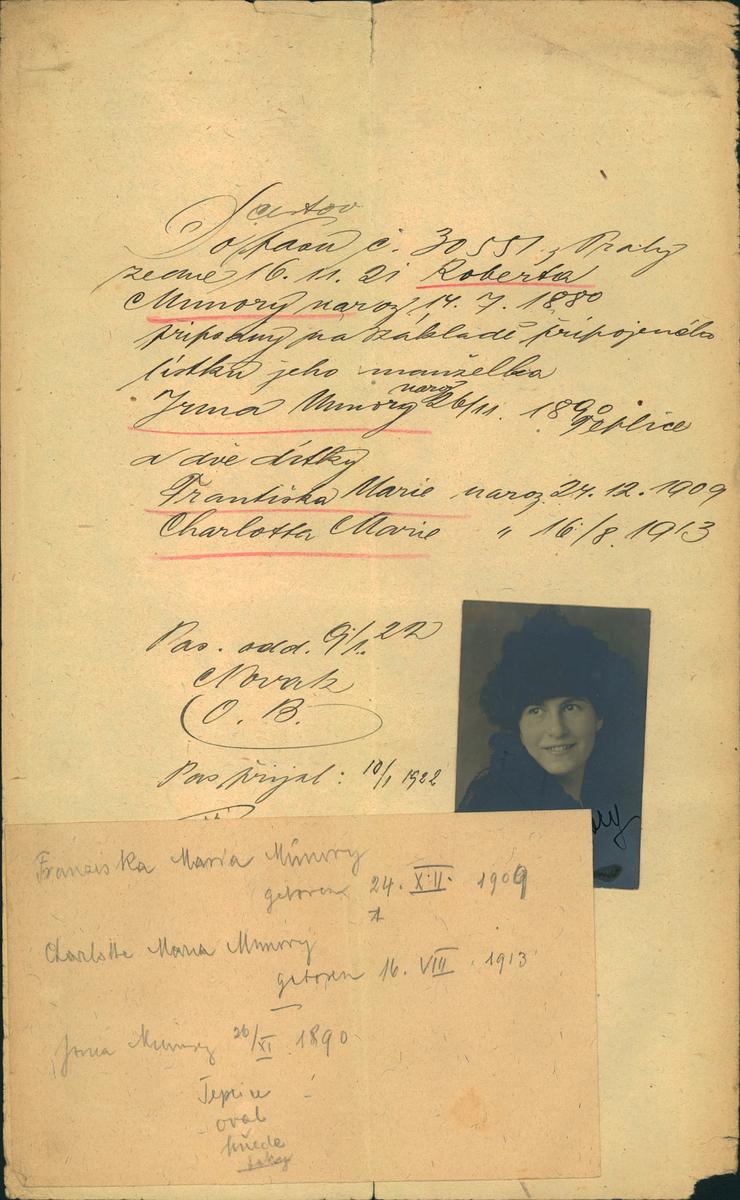 Do pasu č. 30551 z Prahy
ze dne 16.11.21 Roberta
Munory naroz. 14.7.1880
připsány na základě připojeného
lístku jeho manželka
naroz.
Irma Munory 26/11. 1890 Teplice
a dvě dítky
Františka Marie naroz. 24.12.1909
Charlotta Marie " 16/8. 1913
Pas. odd. 9/1. 22
Novak
O. B.
Pas přijal: 10/1 1922
Franziska Maria Munory
geboren 24. XII. 1909
Charlotte Maria Munory
geboren 16. VIII. 1913
Irma Munory 26/XI 1890
Teplice
oval
hnědé